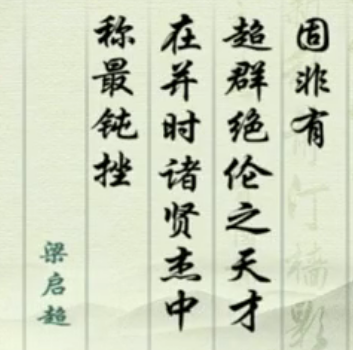 固非有
超群绝伦之天才
在并时诸贤杰中
称最钝挫
梁启超